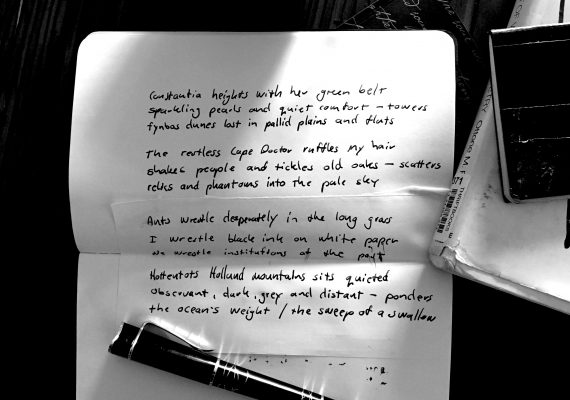 Constantia heights with her green belt
sparkling pearls and quiet comfort – towers
fynbos dunes lost in pallid plains and flats
The restless Cape Doctor ruffles my hair
shakes people and tickles old oaks – scatters
relics and phantoms into the pale sky
Ants wrestle desperately in the long grass
I wrestle black ink on white paper
we wrestle institutions of the past
Hottentots Holland mountains sits quieted
observant, dark, grey and distant – ponders
the ocean's weight / the sweep of a swallow